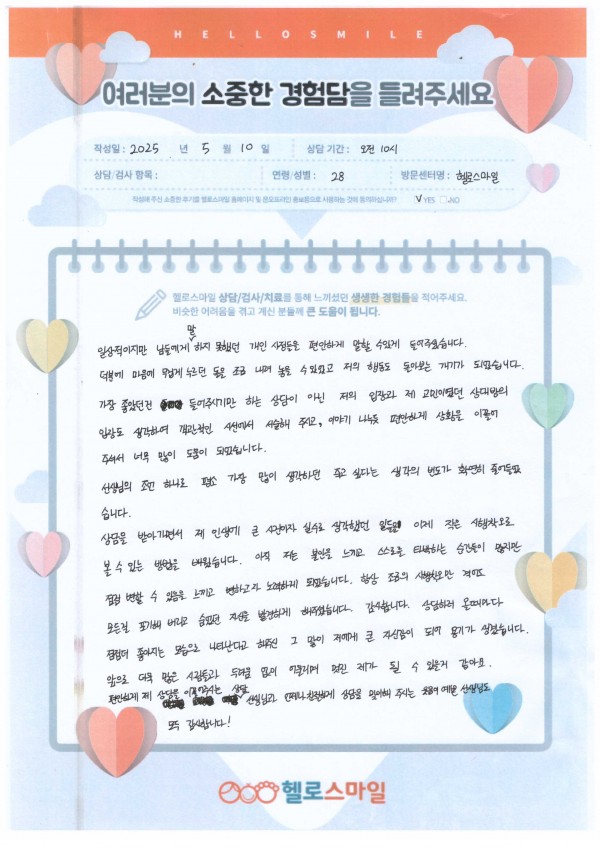 HELLOSMILE
여러분의 소중한 경험담을 들려주세요
작성일 : 2025 년 5 월 10 일 상담 기간 : 오전 10시
상담/검사 항목 : 연령/성별 : 28 방문센터명 : 헬로스마일
작성해 주신 소중한 후기를 헬로스마일 홈페이지 및 온오프라인 홍보물으로 사용하는 것에 동의하십니까? ✓YES □NO
헬로스마일 상담/검사/치료를 통해 느끼셨던 생생한 경험들을 적어주세요.
비슷한 어려움을 겪고 계신 분들께 큰 도움이 됩니다.
일상적이지만 남들에게 말하지 못했던 개인 사정들을 편안하게 말할 수 있게 들어주셨습니다.
덕분에 마음에 무겁게 누르던 돌을 조금 내려 놓을 수 있었고 저의 행동도 돌아보는 계기가 되었습니다.
가장 좋았던건 들어주시기만 하는 상담이 아닌 저의 입장과 제 고민이었던 상대방의
입장도 생각하여 객관적인 시선에서 서술해 주시고, 이야기 나누듯 편안하게 상황을 이끌어
주셔서 너무 많이 도움이 되었습니다.
선생님의 조언 하나로 평소 가장 많이 생각하던 죽고 싶다는 생각의 빈도가 확연히 줄어들었
습니다.
상담을 받아가면서 제 인생에 큰 사건이자 실수로 생각했던 일들을 이제 작은 시행착오로
볼 수 있는 방법을 배웠습니다. 아직 저는 불안을 느끼고 스스로를 타박하는 순간들이 많지만
점점 변할 수 있음을 느끼고 변하고자 노력하게 되었습니다. 항상 조금의 시행착오만 겪어도
모든걸 포기해 버리고 숨었던 자신을 발견하게 해주셨습니다. 감사합니다. 상담하러 올때마다
점점더 좋아지는 모습으로 나타난다고 해주신 그 말이 저에게 큰 자신감이 되어 용기가 생겼습니다.
앞으로 더욱 많은 사람들과 두려움 없이 어울리며 멋진 제가 될 수 있을거 같아요.
편안하게 제 상담을 이끌어주시는 상담 선생님과 언제나 친절하게 상담을 맞이해 주시는 예쁜 선생님도
모두 감사합니다!
헬로스마일